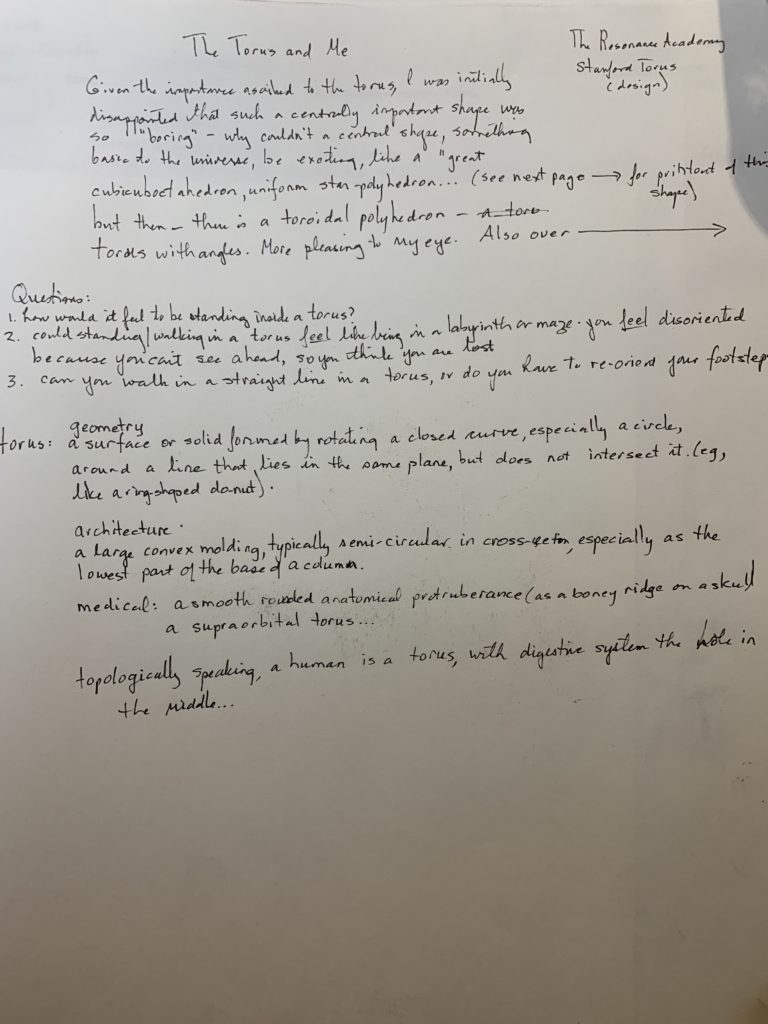 The Torus and Me
The Resonance Academy
Stanford Torus
(design)
Given the importance ascribed to the torus, I was initially
disappointed that such a centrally important shape was
so "boring" - why couldn't a central shape, something
basic to the universe, be exciting, like a "great
cubicuboctahedron, uniform star-polyhedron... (see next page → for printout of this
shape)
but then - there is a toroidal polyhedron - a toro
torus with angles. More pleasing to my eye. Also over →
Questions:
1. how would it feel to be standing inside a torus?
2. could standing/walking in a torus feel like being in a labyrinth or maze. you feel disoriented
because you can't see ahead, so you think you are lost
3. can you walk in a straight line in a torus, or do you have to re-orient your footstep
geometry
torus: a surface or solid formed by rotating a closed curve, especially a circle,
around a line that lies in the same plane, but does not intersect it. (eg,
like a ring-shaped donut).
architecture.
a large convex molding, typically semi-circular in cross-section, especially as the
lowest part of the base of a column.
medical: a smooth rounded anatomical protruberance (as a boney ridge on a skull
a supraorbital torus...
topologically speaking, a human is a torus, with digestive system the hole in
the middle...